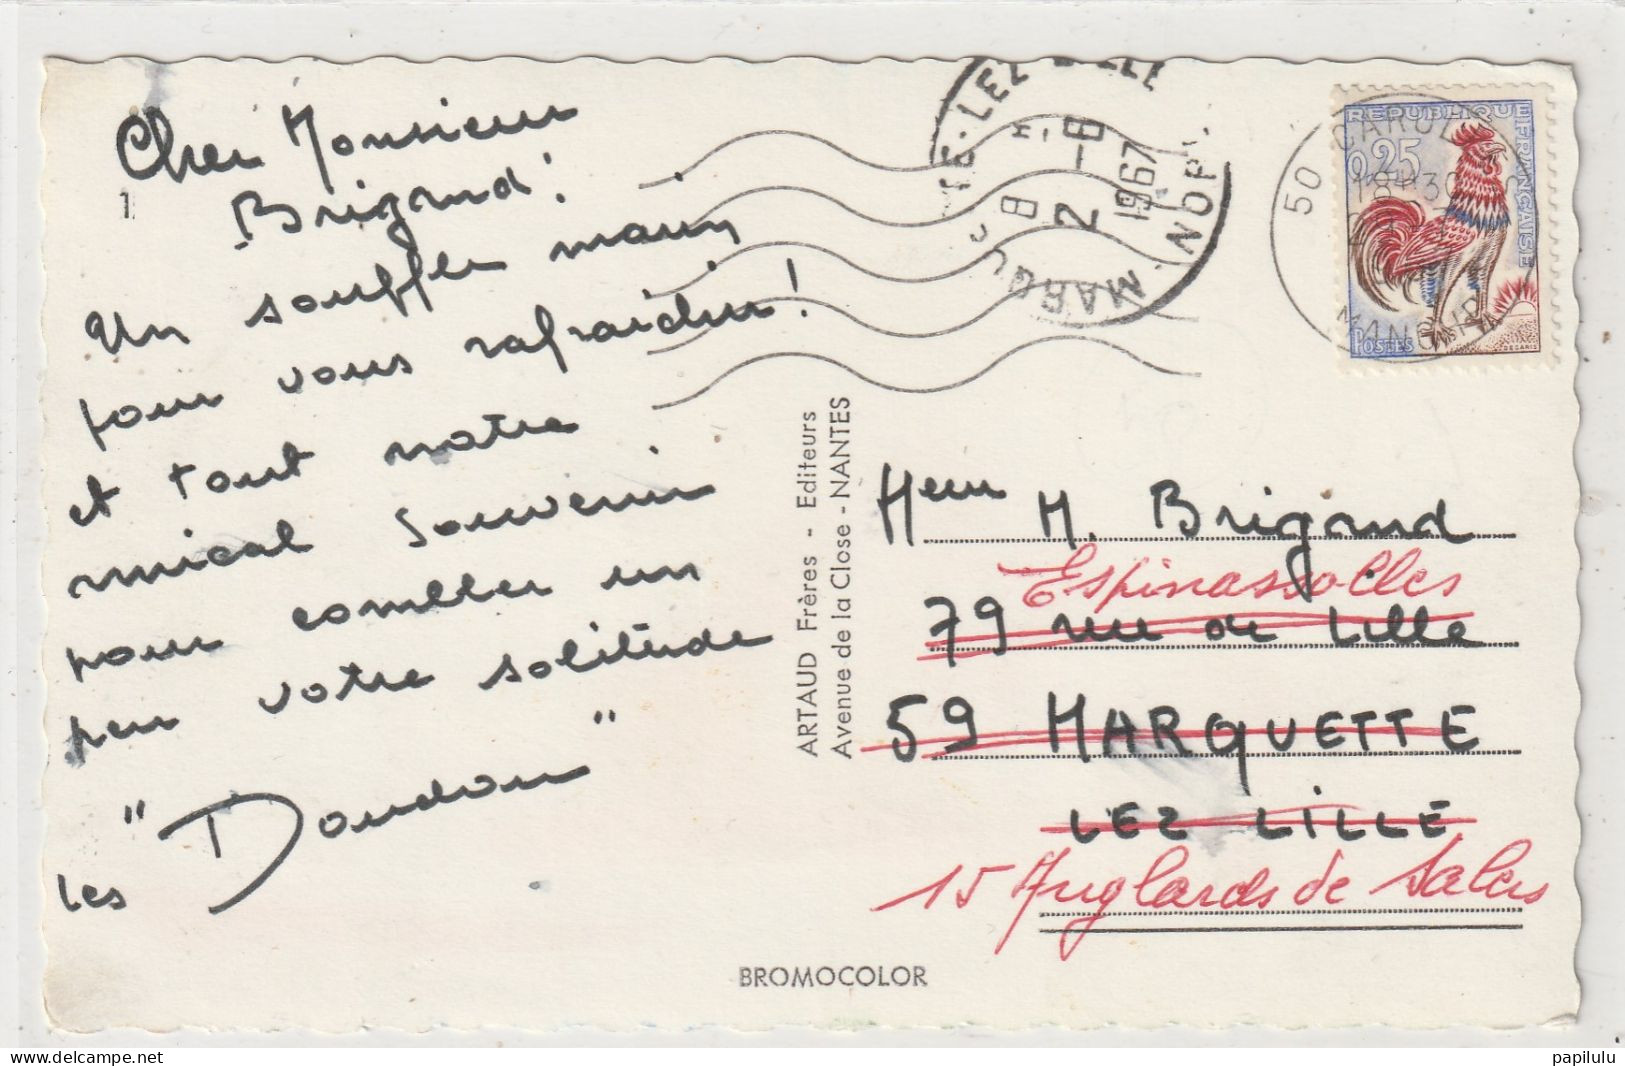 1
Cher Monsieur
Brigand!
Un souffle marin
pour vous rafraichir!
et tout notre
amical souvenir
pour combler un
peu votre solitude
les "Doudou"
ARTAUD Frères - Editeurs
Avenue de la Close - NANTES
BROMOCOLOR
LEZ LILLE
8 H
2 - 8
1967
MARQU
NORD
50 CAROL
18H30
MANCHE
REPUBLIQUE FRANÇAISE
0,25
POSTES
DECARIS
M. Brigand
Espinassolles
79 rue de Lille
59 MARQUETTE
LEZ LILLE
15 Anglards de Salers
papilulu